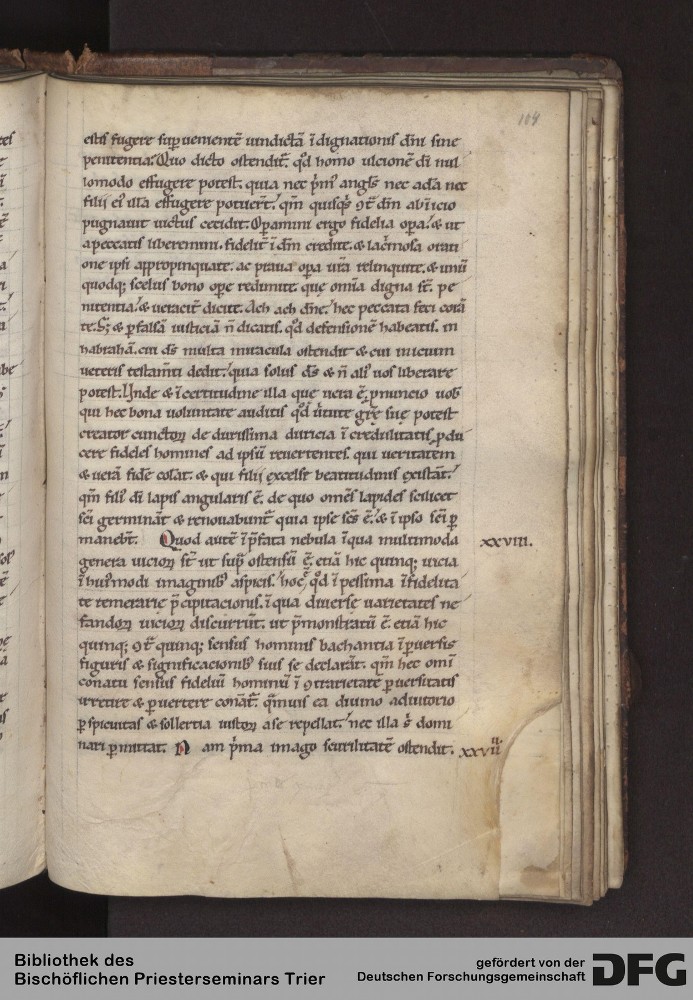 104
estis fugere superueniente uindictā īdignationis dn̄i sine
penitentia. Quo dicto ostendit᷑. qd̓ homo ulcionē di nul
lomodo effugere potest. quia nec p̓m᷒ angl̄s nec adā nec
filii ei᷒ illa effugere potuerīt. qm̄ quisq̄s ꝯt̄ dm̄ ab īicio
pugnauit uictus cecidit. Operamini ergo fidelia opa. & ut
a peccatis liberemini. fidelit̓ ī dm̄ credite. & lac̓mosa orati
one ipsi appropinquate. ac praua opa ur̄a relinquite. & unū
quodq; scelus bono ope redimite. que om̄ia digna st̄. pe
nitentia. & ueracit̓ dicite. Ach ach dn̄e. hec peccata feci corā
te. S; & ꝑ falsā iusticiā n̄ dicatis. qd̓ defensionē habeatis. in
habrahā. cui ds̄ multa miracula ostendit & cui inicium
ueteris testam̄ti dedit. quia solus ds̄ & n̄ ali᷒ uos liberare
potest. Unde & ī certitudine illa que uera ē. ꝓnuncio uob᷒
qui hec bona uoluntate auditis qd̓ uirtute gr̄e sue potest
creator cunctoꝝ de durissima duricia īcredulitatis ꝓdu
cere fideles homines ad ipsū reuertentes. qui ueritatem
& uerā fidē colāt. & qui filii excelse beatitudinis existāt.
qm̄ fili᷒ di lapis angularis ē. de quo omēs lapides scilicet
sc̄i germināt & renouabunt᷑ quia ipse sc̄s ē. & ī ipso sc̄i ꝑ
manebt̄. Quod autē ī p̄fata nebula ī qua multimoda xxviii.
genera uicioꝝ st̄ ut sup̄ ostensū ē. etiā hic quinq; uicia
ī hui᷒modi imaginib᷒ aspicis. hoc ē. qd̓ ī pessima īfidelita
te temerarie p̄cipitacionis. ī qua diuerse uarietates ne
fandoꝝ uicioꝝ discurrūt. ut p̄monstratū ē. etiā hic
quinq; ꝯt̄ quinq; sensus hominis bachantia ī ꝑuersis
figuris & significacionib᷒ suis se declarāt. qm̄ hec om̄i
conatu sensus fideliū hominū ī ꝯtrarietate ꝑuersitatis
irretire & ꝑuertere conāt᷑. qm̄uis ea diuino adiutorio
ꝑspicuitas & sollertia iustoꝝ a se repellat. nec illa s̓ domi
nari ꝑmittat. Nam p̓ma imago scurilitatē ostendit. xxviiii
Bibliothek des
Bischöflichen Priesterseminars Trier
gefördert von der
Deutschen Forschungsgemeinschaft
DFG